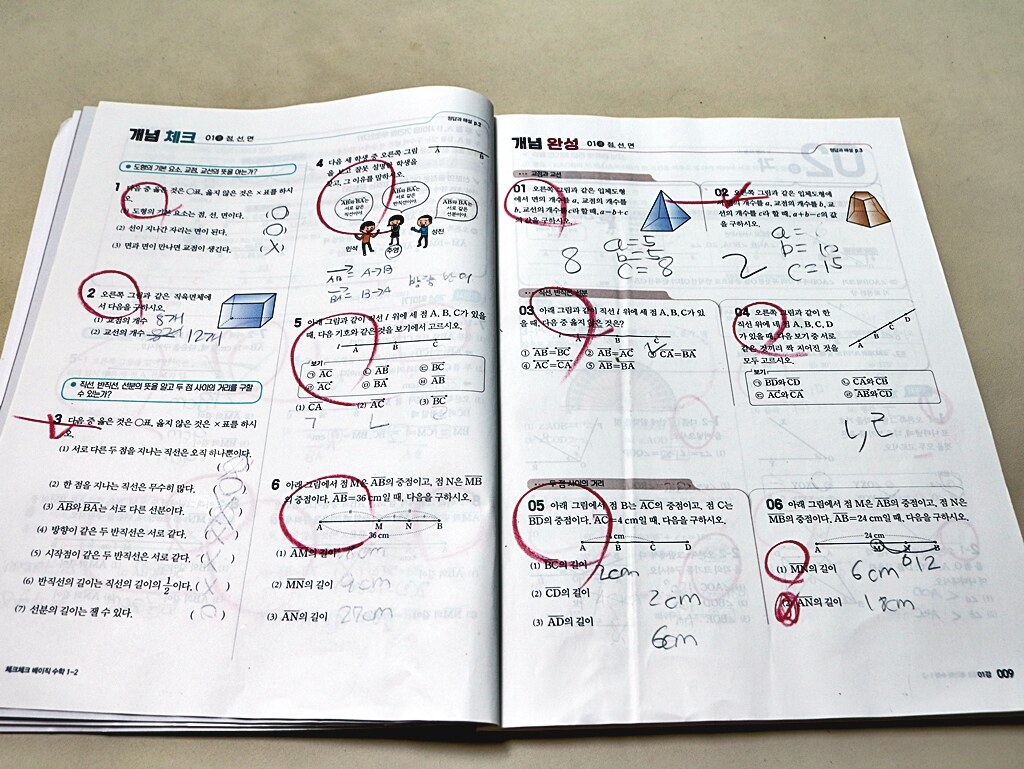 개념 체크
01 점, 선, 면
정답과 해설 p.2
도형의 기본 요소, 교점, 교선의 뜻을 아는가?
1 다음 중 옳은 것은 ○표, 옳지 않은 것은 ×표를 하시오.
(1) 도형의 기본 요소는 점, 선, 면이다. ( ○ )
(2) 선이 지나간 자리는 면이 된다. ( ○ )
(3) 면과 면이 만나면 교점이 생긴다. ( X )
2 오른쪽 그림과 같은 직육면체에
서 다음을 구하시오.
(1) 교점의 개수 8개
(2) 교선의 개수 12개
직선, 반직선, 선분의 뜻을 알고 두 점 사이의 거리를 구할
수 있는가?
3 다음 중 옳은 것은 ○표, 옳지 않은 것은 ×표를 하시
오.
(1) 서로 다른 두 점을 지나는 직선은 오직 하나뿐이다.
( )
(2) 한 점을 지나는 직선은 무수히 많다. ( ○ )
(3) AB와 BA는 서로 다른 선분이다. ( X )
(4) 방향이 같은 두 반직선은 서로 같다. ( X )
(5) 시작점이 같은 두 반직선은 서로 같다. ( X )
(6) 반직선의 길이는 직선의 길이의 1/2이다. ( X )
(7) 선분의 길이는 잴 수 있다. ( ○ )
체크체크 베이직 수학 1-2
4 다음 세 학생 중 오른쪽 그림
을 보고 잘못 설명한 학생을
찾고, 그 이유를 말하시오.
A B
AB와 BA는
서로 같은
직선이야.
AB와 BA는
서로 같은
반직선이야.
AB와 BA는
서로 같은
선분이야.
민석 주영 상진
AB = A→B
BA = B→A
5 아래 그림과 같이 직선 l 위에 세 점 A, B, C가 있을
때, 다음 기호와 같은 것을 보기에서 고르시오.
l A B C
보기
㉠ AC ㉡ AB ㉢ BC
㉣ AC ㉤ BA ㉥ AB
(1) CA (2) AC (3) BC
ㄱ ㄴ
6 아래 그림에서 점 M은 AB의 중점이고, 점 N은 MB
의 중점이다. AB=36 cm일 때, 다음을 구하시오.
A M N B
36 cm
(1) AM의 길이
(2) MN의 길이 9cm
(3) AN의 길이 27cm
개념 완성
01 점, 선, 면
정답과 해설 p.3
교점과 교선
01 오른쪽 그림과 같은 입체도형
에서 면의 개수를 a, 교점의 개수를
b, 교선의 개수를 c라 할 때, a-b+c
의 값을 구하시오.
8
a=5
b=5
c=8
02 오른쪽 그림과 같은 입체도형에
서 면의 개수를 a, 교점의 개수를 b, 교
선의 개수를 c라 할 때, a+b-c의 값
을 구하시오.
2
a=
b=10
c=15
직선, 반직선, 선분
03 아래 그림과 같이 직선 l 위에 세 점 A, B, C가 있
을 때, 다음 중 옳지 않은 것은?
l A B C
① AB=BC ② AB=AC ③ CA=BA
④ AC=CA ⑤ AB=BA
04 오른쪽 그림과 같이 한
직선 위에 네 점 A, B, C, D
가 있을 때, 다음 보기 중 서로
같은 것끼리 짝 지어진 것을
모두 고르시오.
A B C D
보기
㉠ BD와 CD ㉡ CA와 CB
㉢ AC와 CA ㉣ AB와 CD
ㄴ, ㄹ
두 점 사이의 거리
05 아래 그림에서 점 B는 AC의 중점이고, 점 C는
BD의 중점이다. AC=4 cm일 때, 다음을 구하시오.
4 cm
A B C D
(1) BC의 길이 2cm
(2) CD의 길이 2cm
(3) AD의 길이 6cm
06 아래 그림에서 점 M은 AB의 중점이고, 점 N은
MB의 중점이다. AB=24 cm일 때, 다음을 구하시오.
24 cm
A M N B
(1) MN의 길이 6cm
(2) AN의 길이 18cm
01강 009